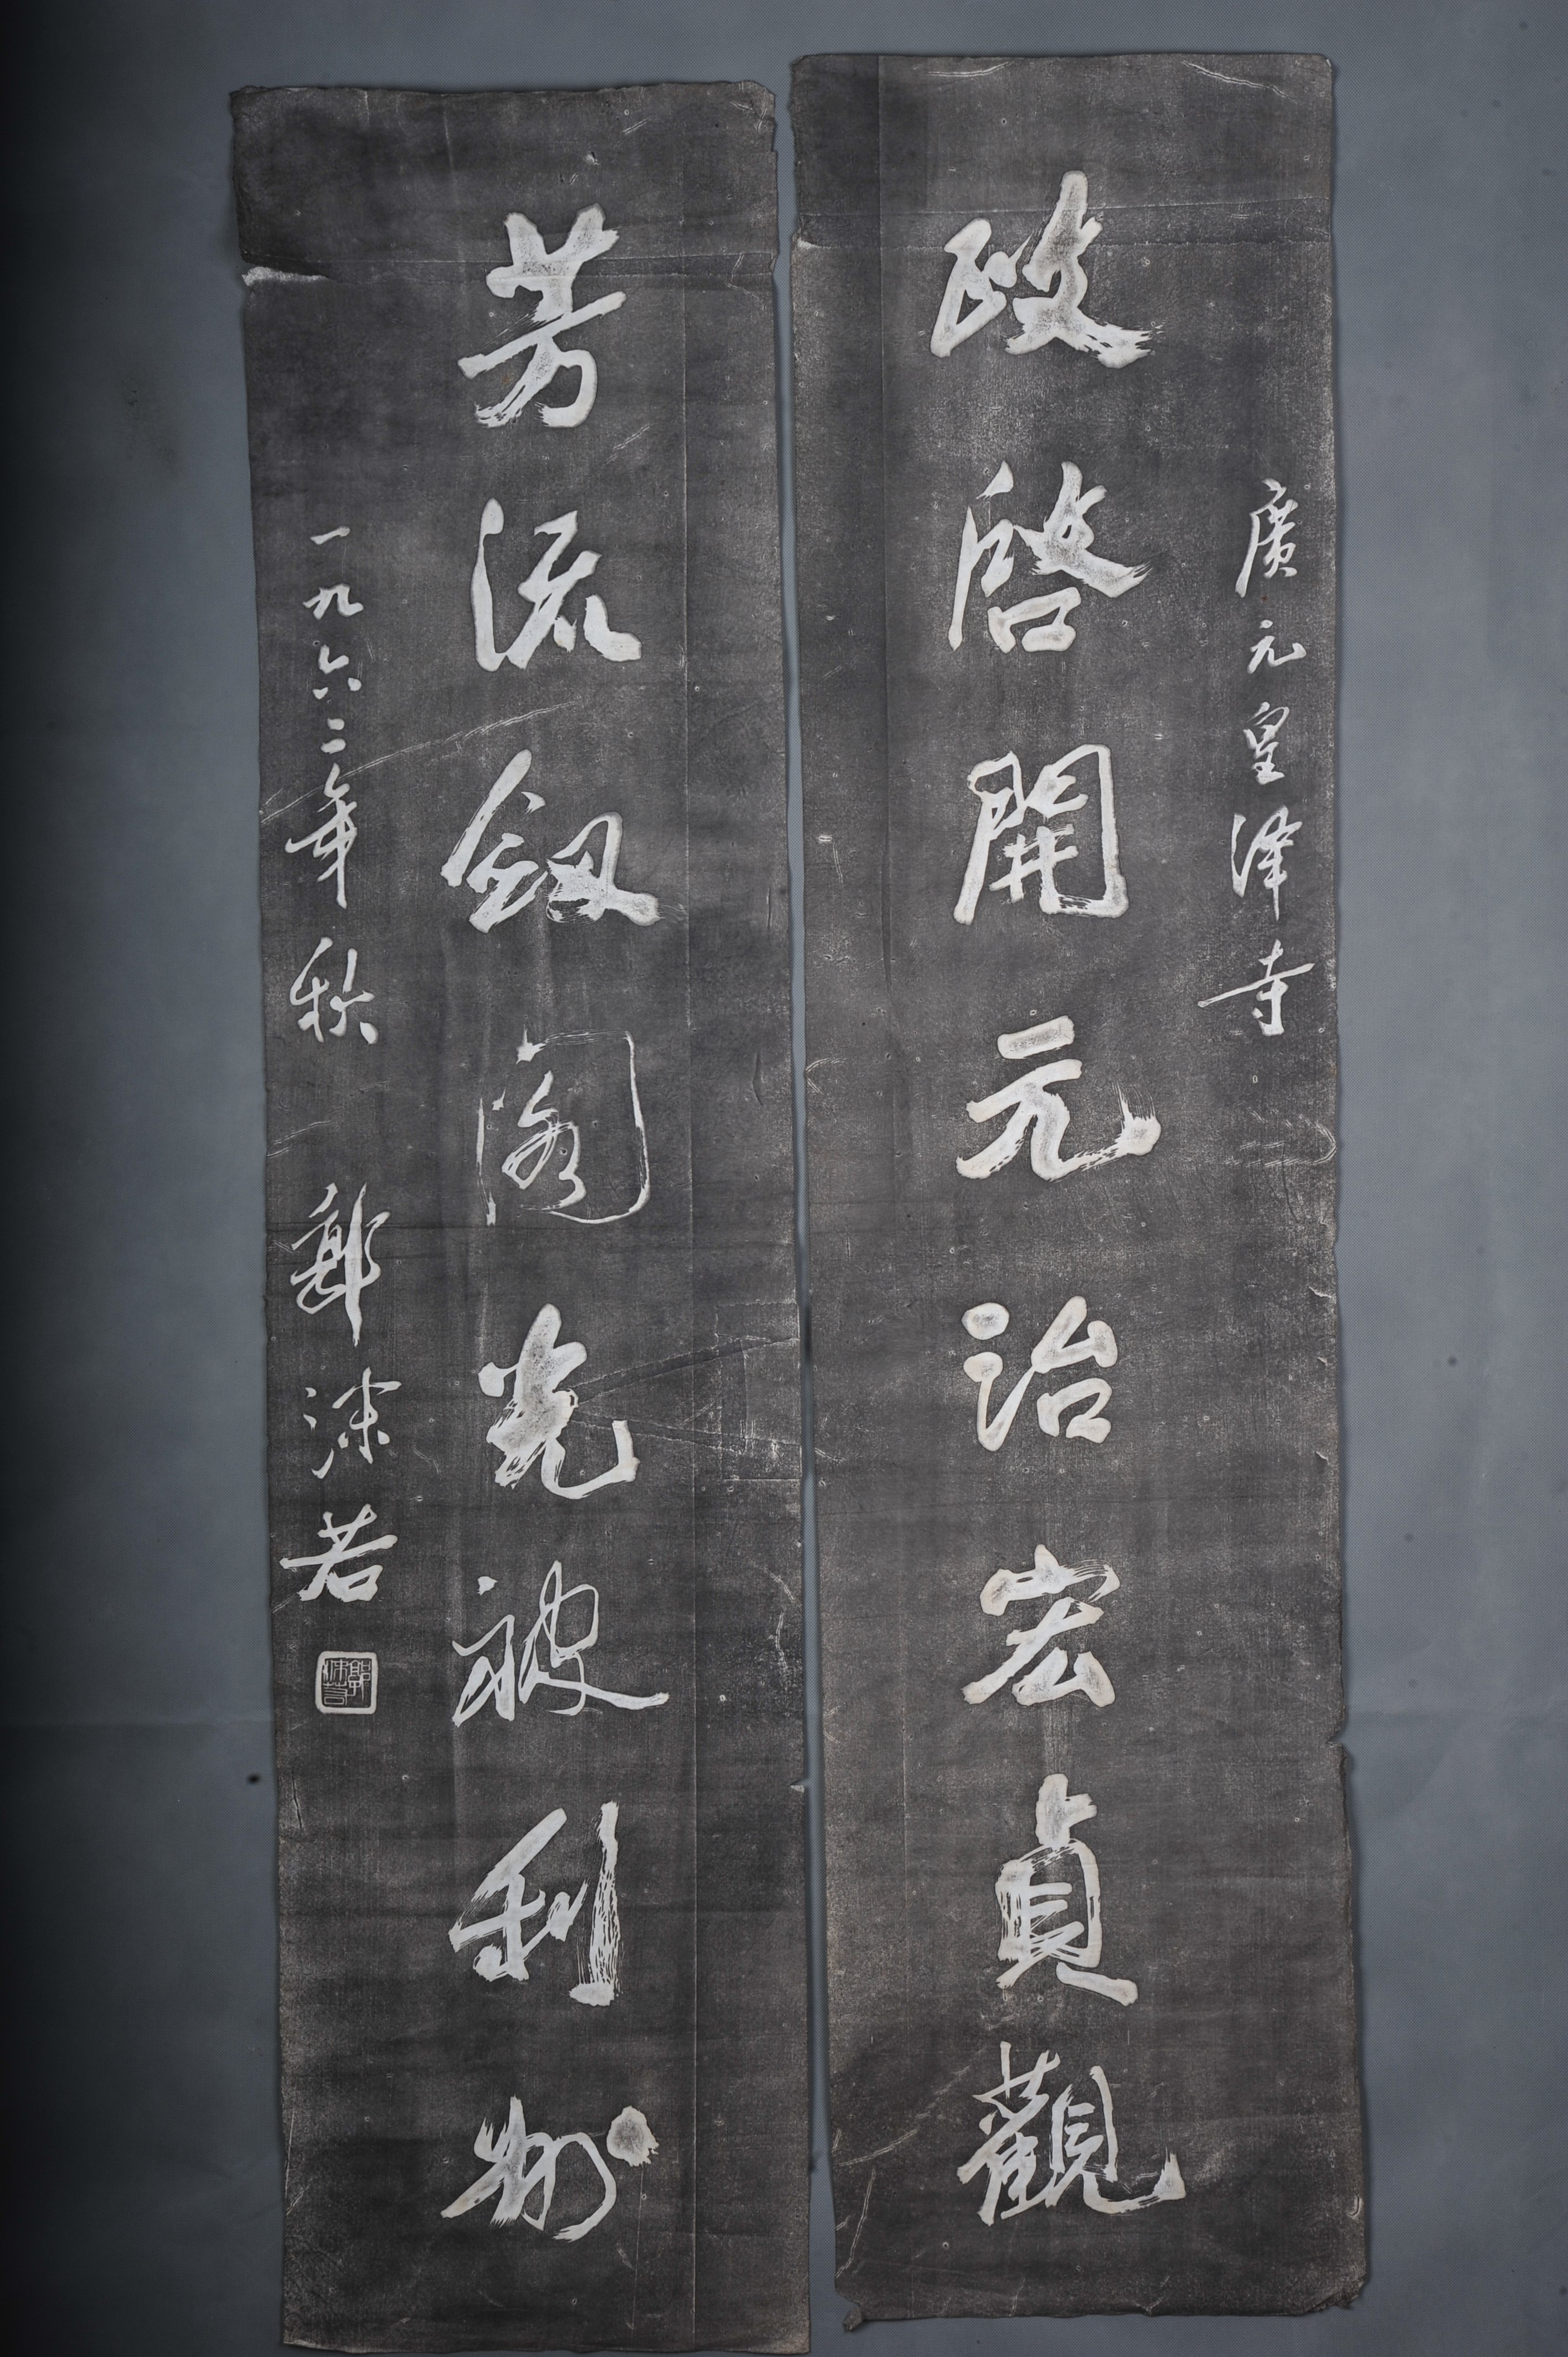 廣元皇澤寺
政啓開元治宏貞觀
芳流劔閣光被利州
一九六二年秋 郭沫若
郭沫若